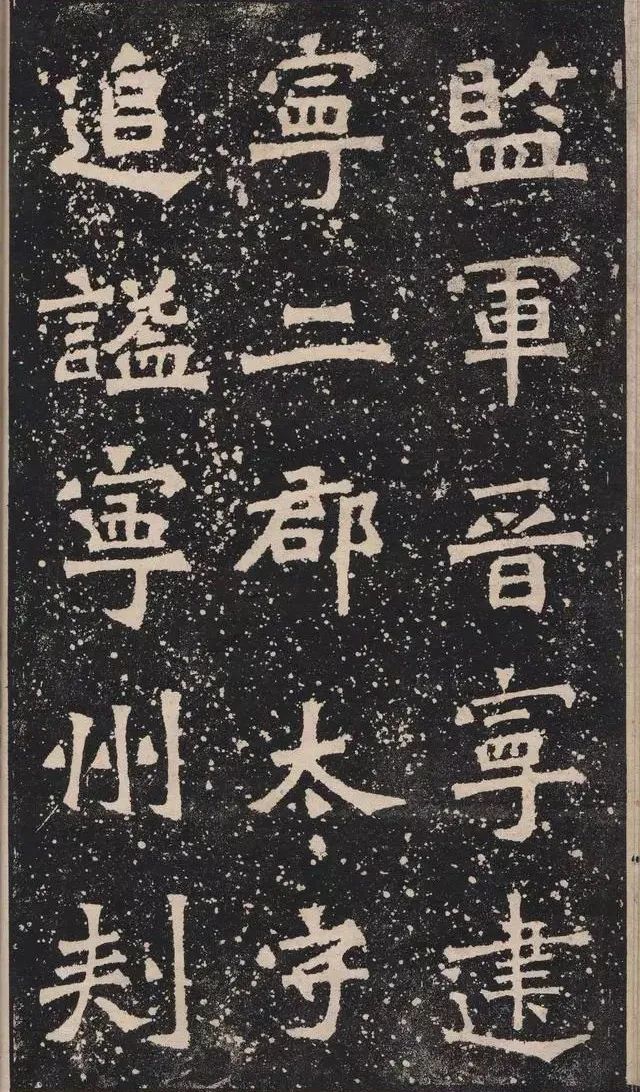 監軍晉寧建
寧二郡太守
追謚寧州刾